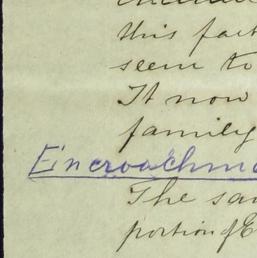 this fact
seem to
It now
family
Encroachm
The sa
portion of E